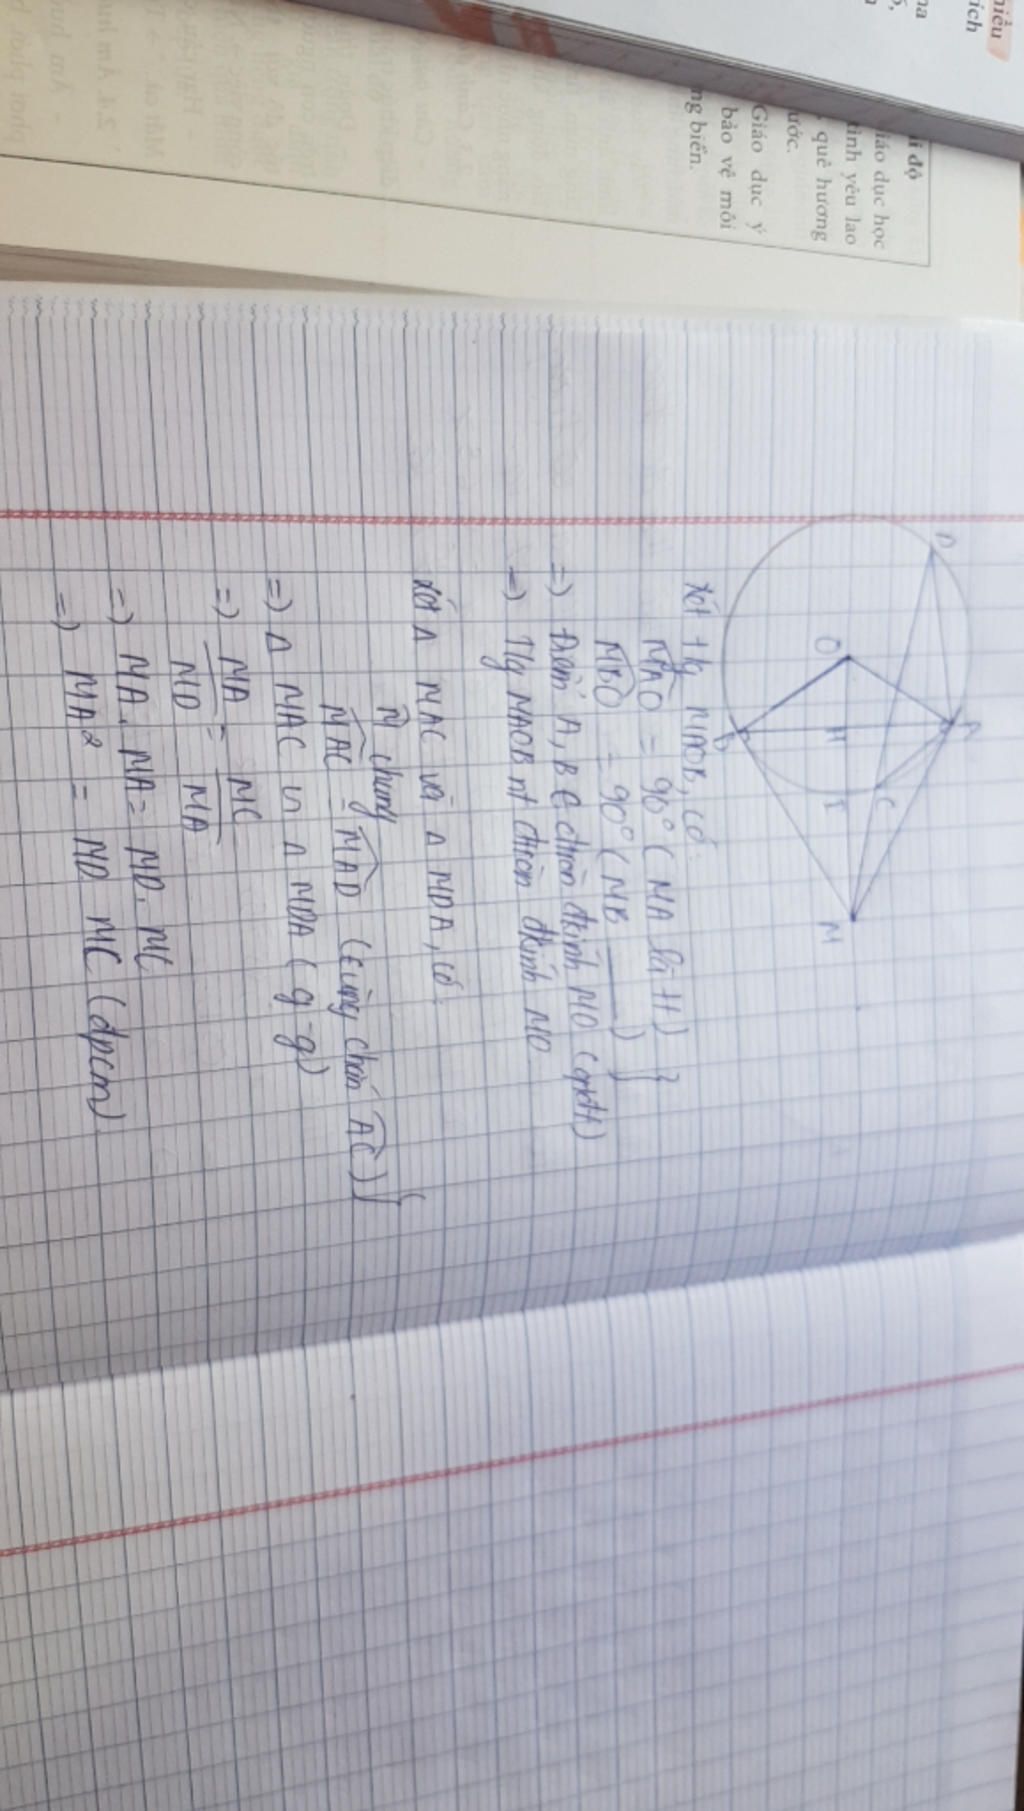 hiều
ích
na
ố,
ái độ
iáo dục học
tình yêu lao
, quê hương
ước.
Giáo dục ý
bảo vệ môi
ng biển.
D
A
O
H
I
C
B
M
Xét tứg MAOB, có:
MAO = 90° (MA là tt) }
MBO = 90° (MB ——)
=) Điểm A, B ∈ đtròn đkính MO (qktt)
=) Tứg MAOB nt đtròn đkính MO
Xét Δ MAC và Δ MDA, có:
M chung
MAC = MAD (cùng chắn AC) }
=) Δ MAC ∽ Δ MDA (g-g)
=) MA/MD = MC/MA
=) MA. MA = MD. MC
=) MA² = MD MC (đpcm)